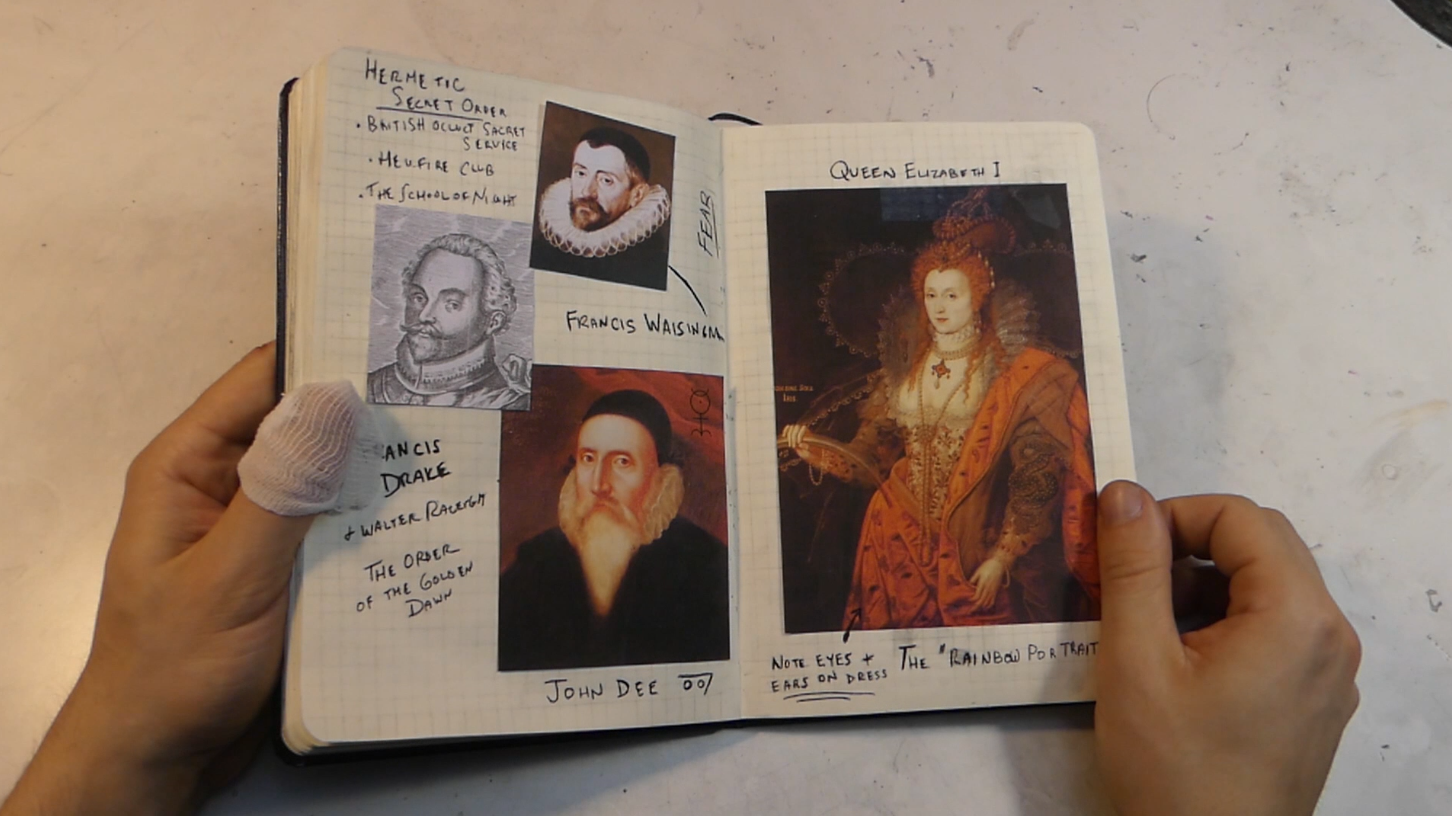 HERMETIC
SECRET ORDER
• BRITISH OCCULT SACRET
SERVICE
• HELLFIRE CLUB
• THE SCHOOL OF NIGHT
FEAR
FRANCIS WALSINGHAM
ANCIS
DRAKE
+ WALTER RALEIGH
THE ORDER
OF THE GOLDEN
DAWN
JOHN DEE 007
QUEEN ELIZABETH I
NOTE EYES +
EARS ON DRESS
THE "RAINBOW PORTRAIT